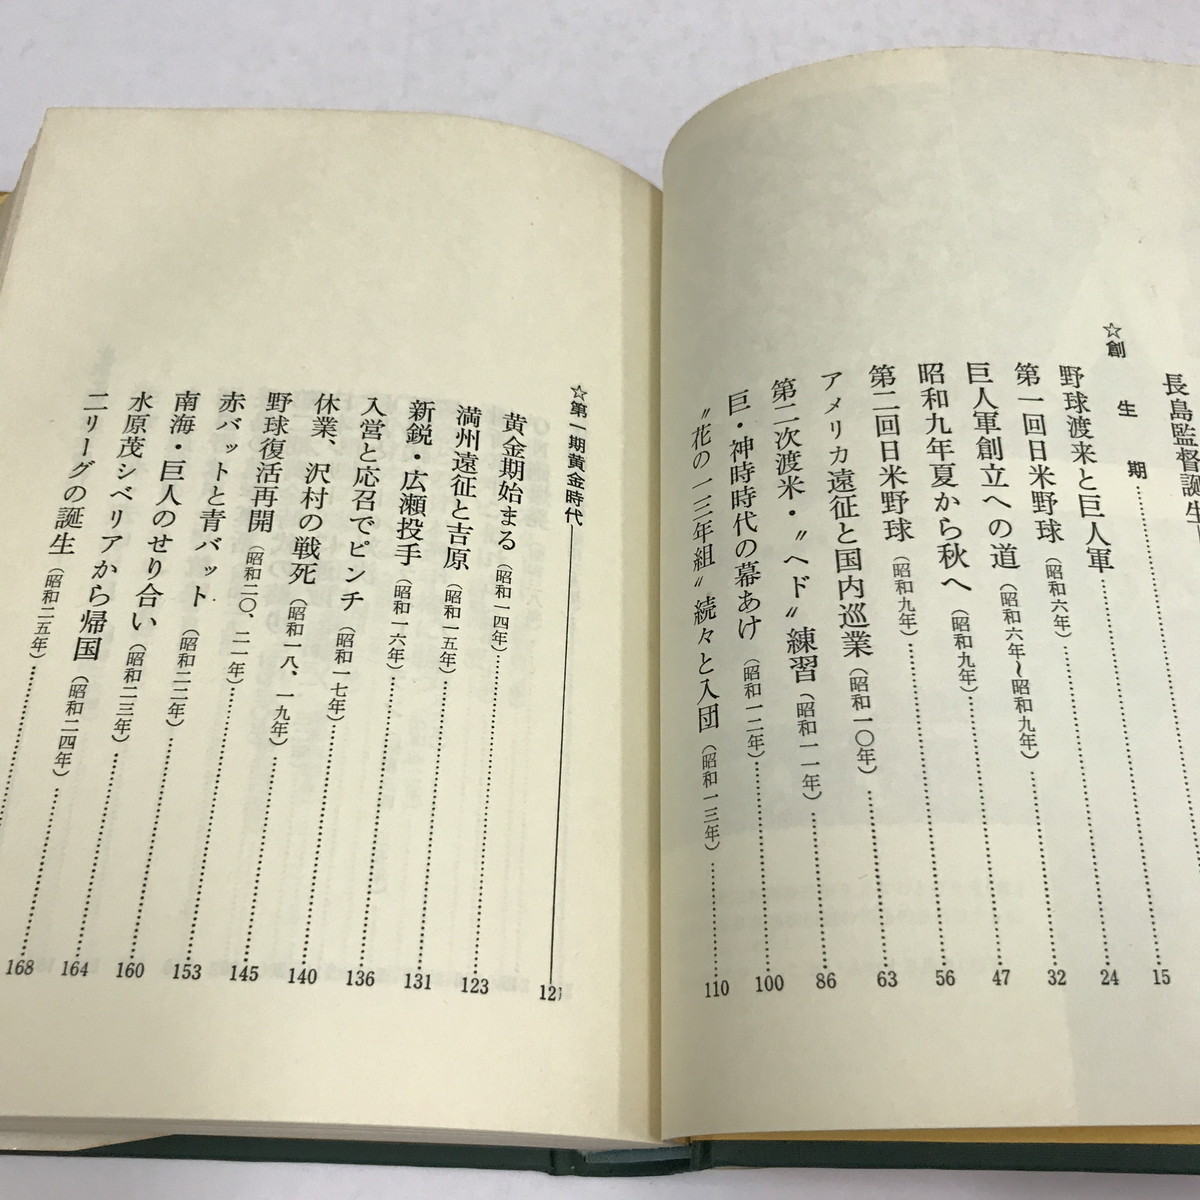 長島監督誕生
☆創生期
野球渡来と巨人軍 15
第一回日米野球(昭和六年) 24
巨人軍創立への道(昭和六年~昭和九年) 32
昭和九年夏から秋へ(昭和九年) 47
第二回日米野球(昭和九年) 56
アメリカ遠征と国内巡業(昭和一〇年) 63
第二次渡米・〝ヘド〟練習(昭和一一年) 86
巨・神時時代の幕あけ(昭和一二年) 100
〝花の一三年組〟続々と入団(昭和一三年) 110
☆第一期黄金時代 121
黄金期始まる(昭和一四年) 123
満州遠征と吉原(昭和一五年) 131
新鋭・広瀬投手(昭和一六年) 136
入営と応召でピンチ(昭和一七年) 140
休業、沢村の戦死(昭和一八、一九年) 145
野球復活再開(昭和二〇、二一年) 153
赤バットと青バット(昭和二二年) 160
南海・巨人のせり合い(昭和二三年) 164
水原茂シベリアから帰国(昭和二四年) 168
二リーグの誕生(昭和二五年)